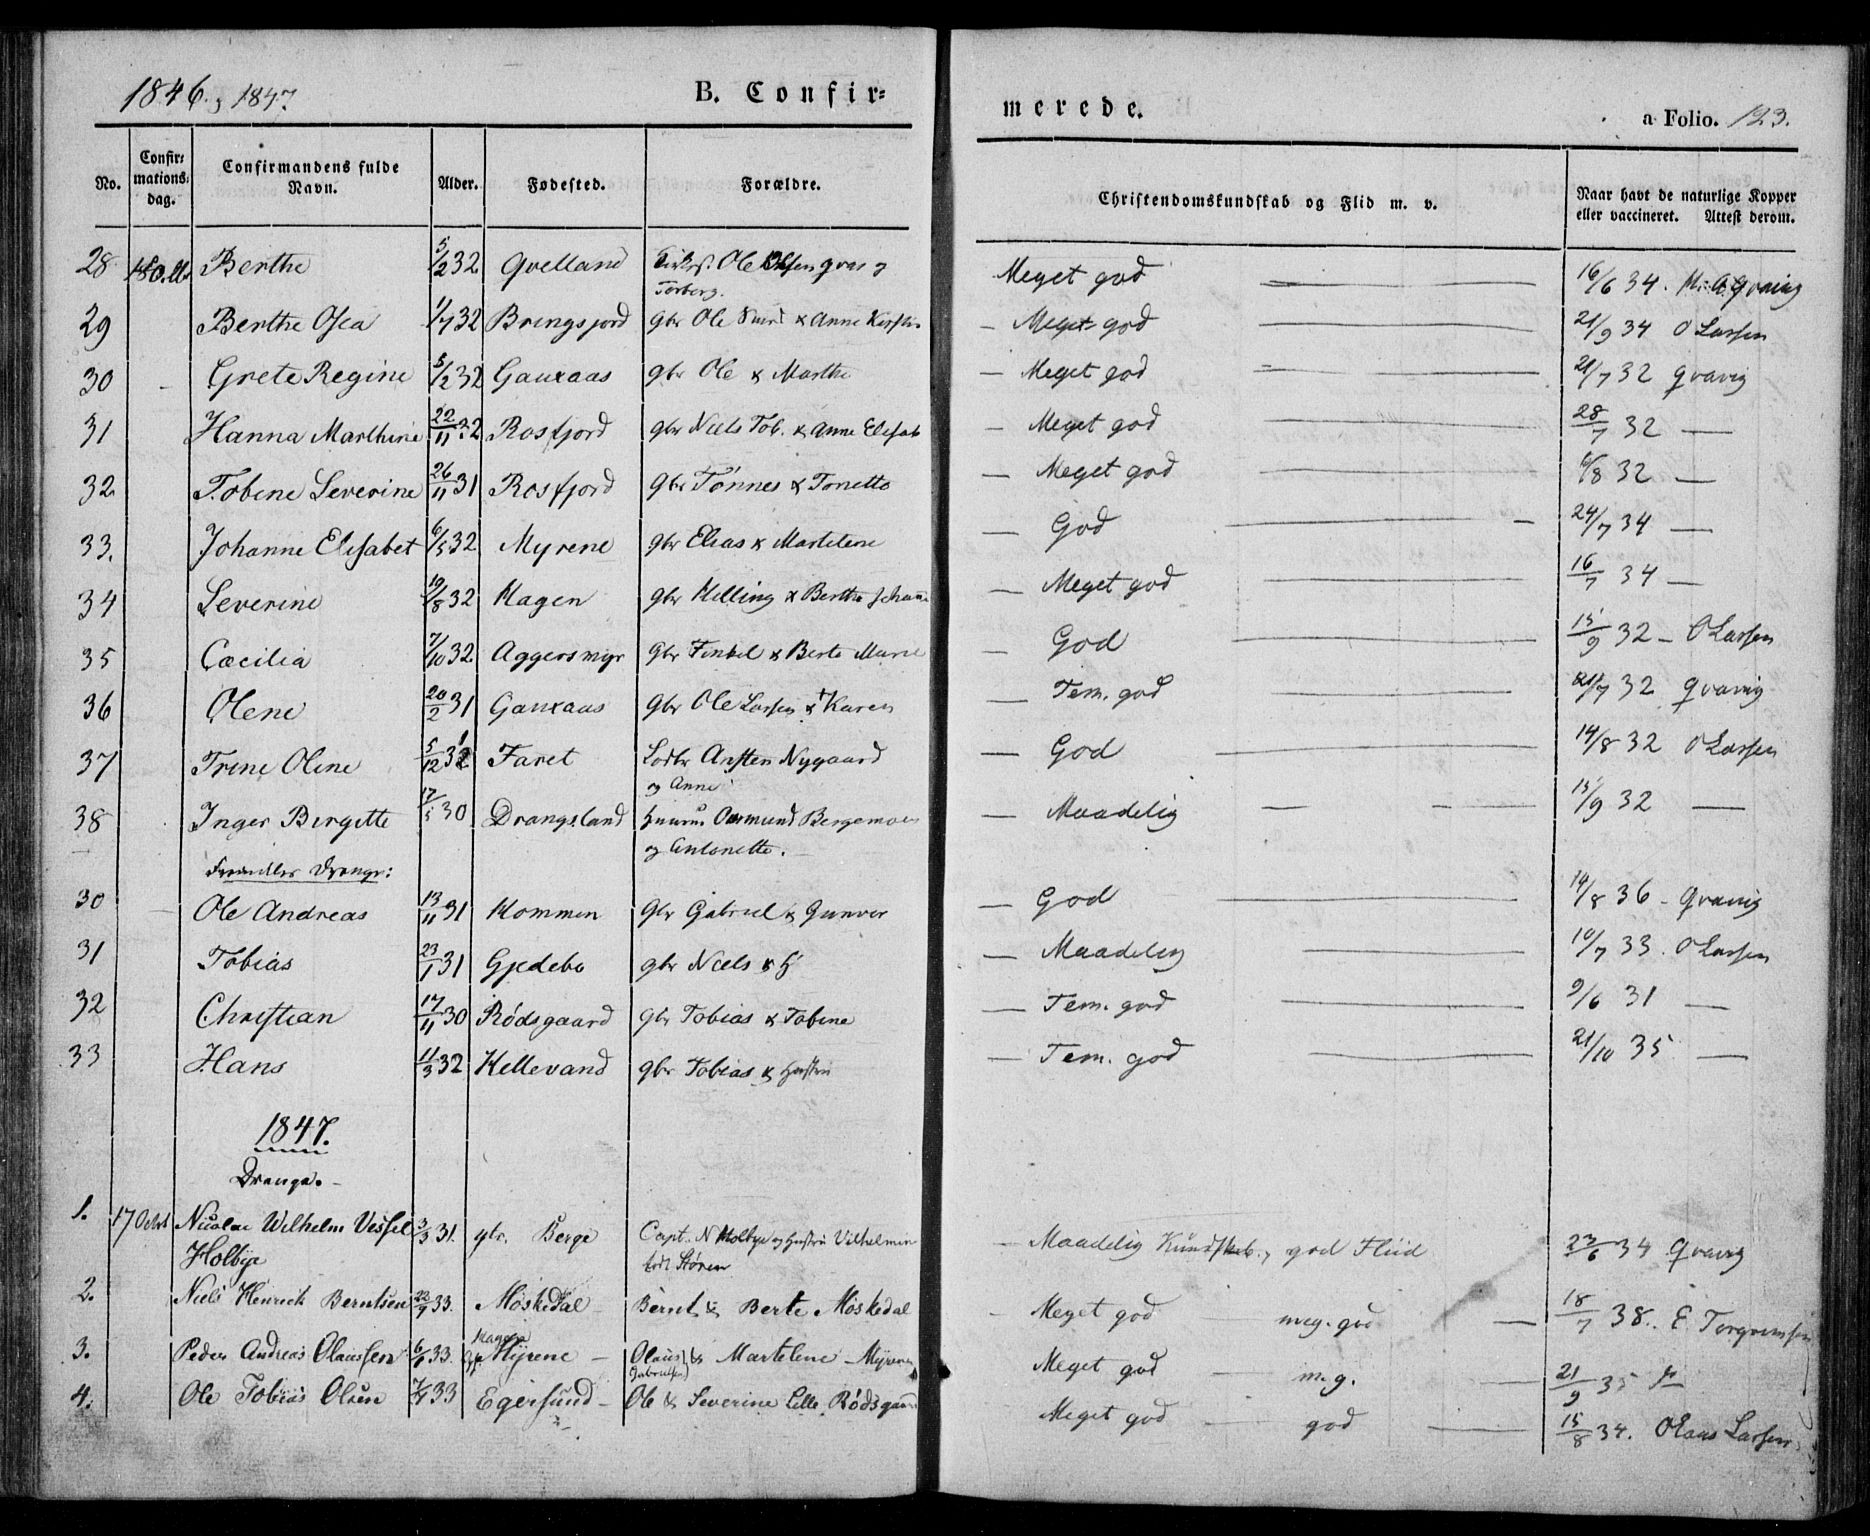 1846 & 1847
B. Confir=
merede.
a Folio. 123.
No. Confir= mations= dag. Confirmandens fulde Navn. Alder. Fødested. Forældre. Christendomskundskab og Flid m. v. Naar havt de naturlige Kopper eller vaccineret. Attest derom.
28 Berthe 5/2 32 Qvelland Ole Olsen qvas og Torborg. Meget god 16/6 34. Qvavig
29 Berthe Osea 1/7 32 Bringsjord gbr Ole & Anne Kirstin — Meget god 21/9 34 O Larsen
30 Grete Regine 5/2 32 Gauxaas gbr Ole & Marthe — Meget god 21/7 32 qvavig
31 Hanna Marthine 22/11 32 Rosfjord gbr Niels Tob. & Anne Elisab — Meget god 28/7 32 —
32 Tobine Severine 26/11 31 Rosfjord gbr Tønnes & Tonette — Meget god 6/8 32 —
33. Johanne Elisabet 6/5 32 Myrene gbr Elias & Martelene — God 24/7 34 —
34 Severine 19/8 32 Hagen gbr Helling & Berthe Johanne — Meget god 16/7 34 —
35 Cæcilia 7/10 32 Aggersmyr gbr Tinkel & Berte Marie — God 15/9 32 — O Larsen
36 Olene 20/2 31 Gauxaas gbr Ole Larsen & Karen — Tem. god 21/7 32 qvavig
37 Trine Oline 5/12 31 Faret Ansten Nygaard og Anne — God 14/8 32 O Larsen
38 Inger Birgitte 17/5 30 Drangsland Osmund Bergemoen og Antonette. — Maadelig 15/9 32 —
Drenge:
30 Ole Andreas 13/11 31 Kommen Gbr Gabriel & Gunvor — God 14/8 36 — Qvavig
31 Tobias 23/1 31 Gjedebo gbr Niels & G — Maadelig 10/7 33. O Larsen
32 Christian 17/11 30 Rødsgaard gbr Tobias & Tobine — Tem. god 9/6 31 —
33 Hans 11/3 32 Kellevand gbr Tobias & Hustru — Tem. god 21/10 35 —
1847.
Drenge.
1. 17 Octbr Nicolai Wilhelm Vessel Holbye 3/3 31. gbr. Berge Capt. N Holbye og Hustru Vilhelmin født Støren — Maadelig Kundskab, god Fliid 23/6 34 Qvavig
2. Niels Henrick Berntsen 22/7 33. Møskedal — Bernt & Berte Møskedal — Meget god — meg. god — 18/7 38. E Torgremsen
3. Peder Andreas Olaussen 6/6 33. Myrene — Olaus Gabrielsen & Martelene Myrene Meget god — m. g. — 21/9 35
4. Ole Tobias Olsen 7/7 33 Egersund — Ole & Severine Lille Rødsgaard Meget god — god — 15/8 34. Olaus Larsen